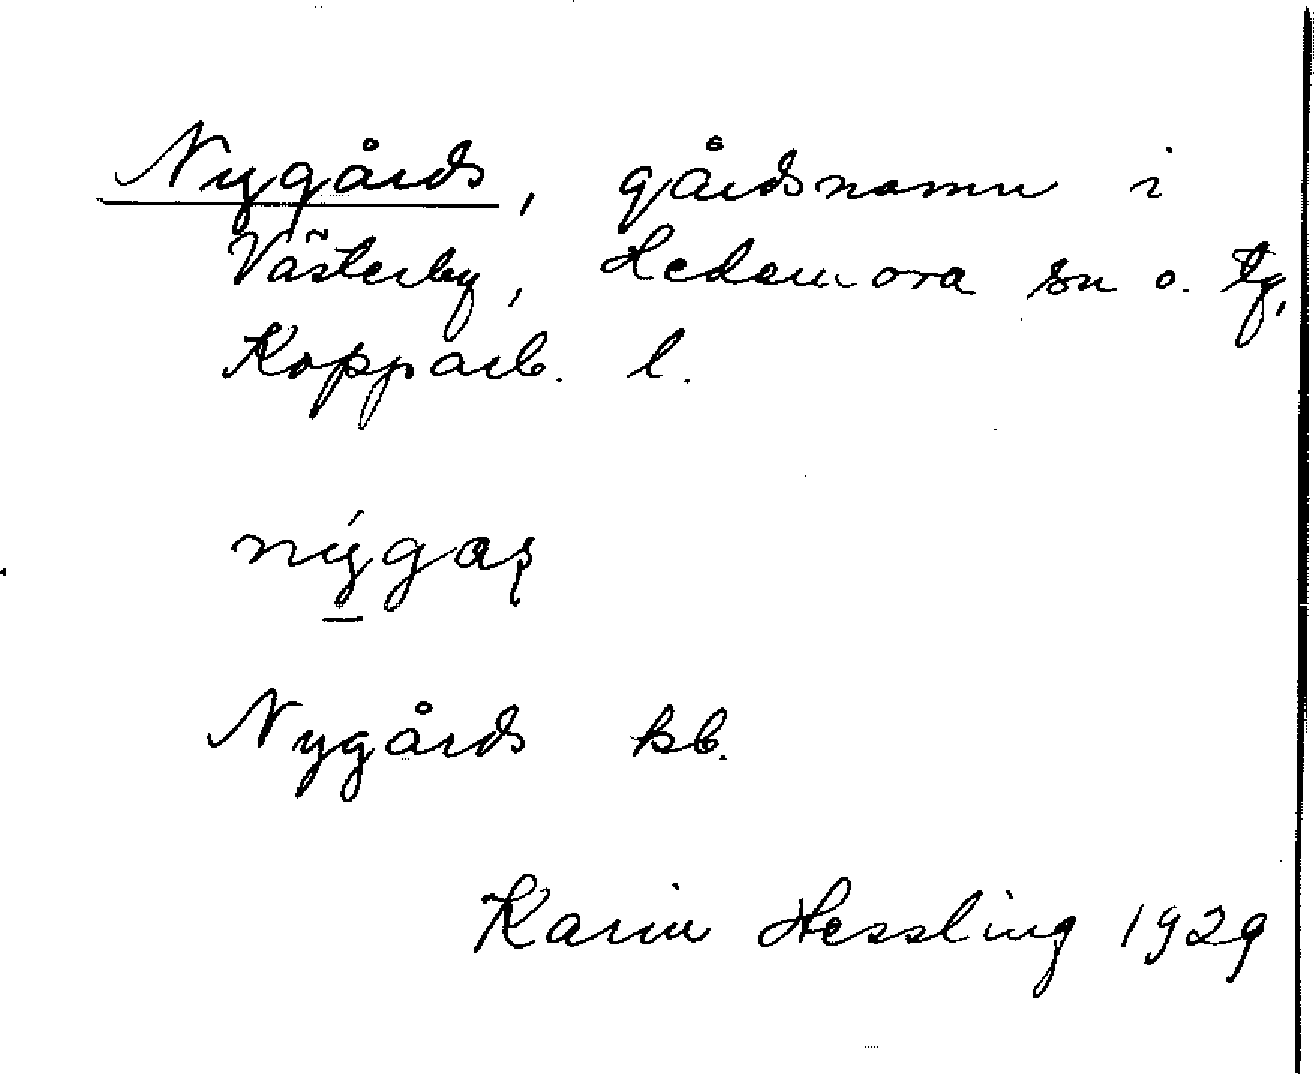 Nygårds, gårdsnamn i
Västerby, Hedemora sn o. tg,
Kopparb. l.
nýgaş
Nygårds kb.
Karin Hessling 1929